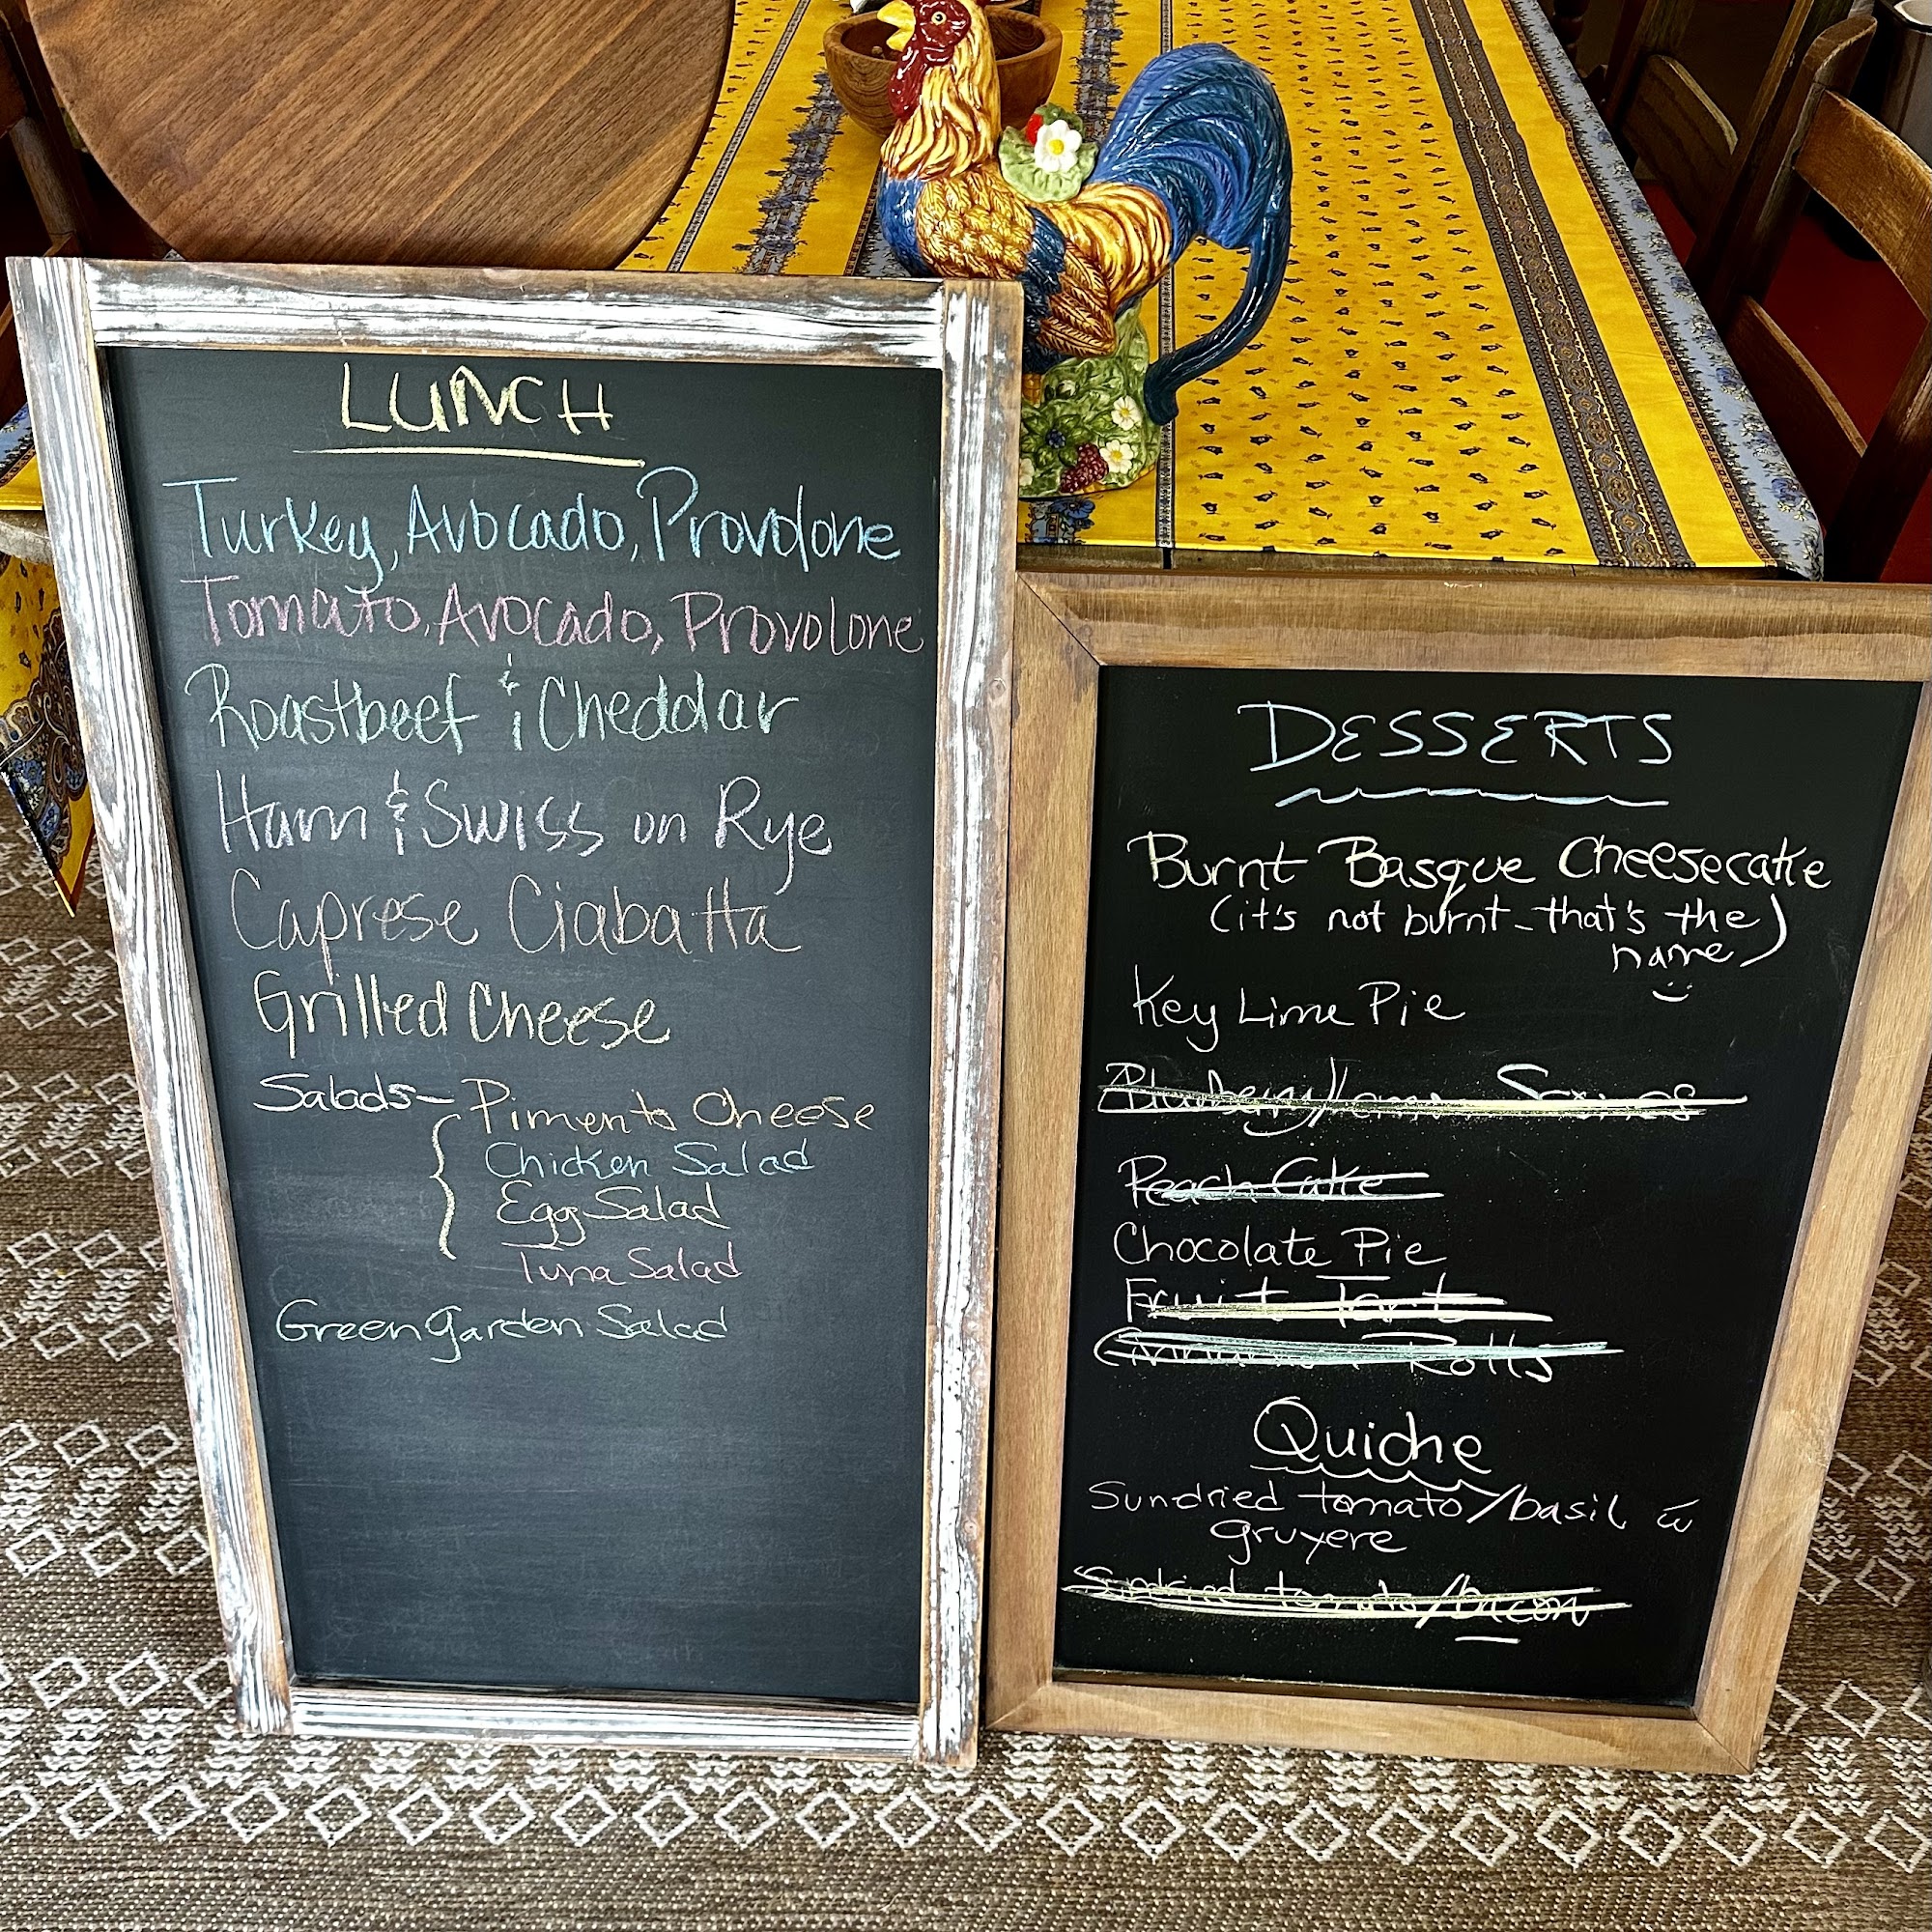 LUNCH
Turkey, Avocado, Provolone
Tomato, Avocado, Provolone
Roastbeef & Cheddar
Ham & Swiss on Rye
Caprese Ciabatta
Grilled Cheese
Salads - Pimento Cheese
Chicken Salad
Egg Salad
Tuna Salad
Green Garden Salad
DESSERTS
Burnt Basque Cheesecake
(it's not burnt - that's the
name)
Key Lime Pie
Blueberry/Lemon Scones
Peach Cake
Chocolate Pie
Fruit Tart
Cinnamon Rolls
Quiche
Sundried tomato/basil w̄
gruyere
Sundried tomato/bacon